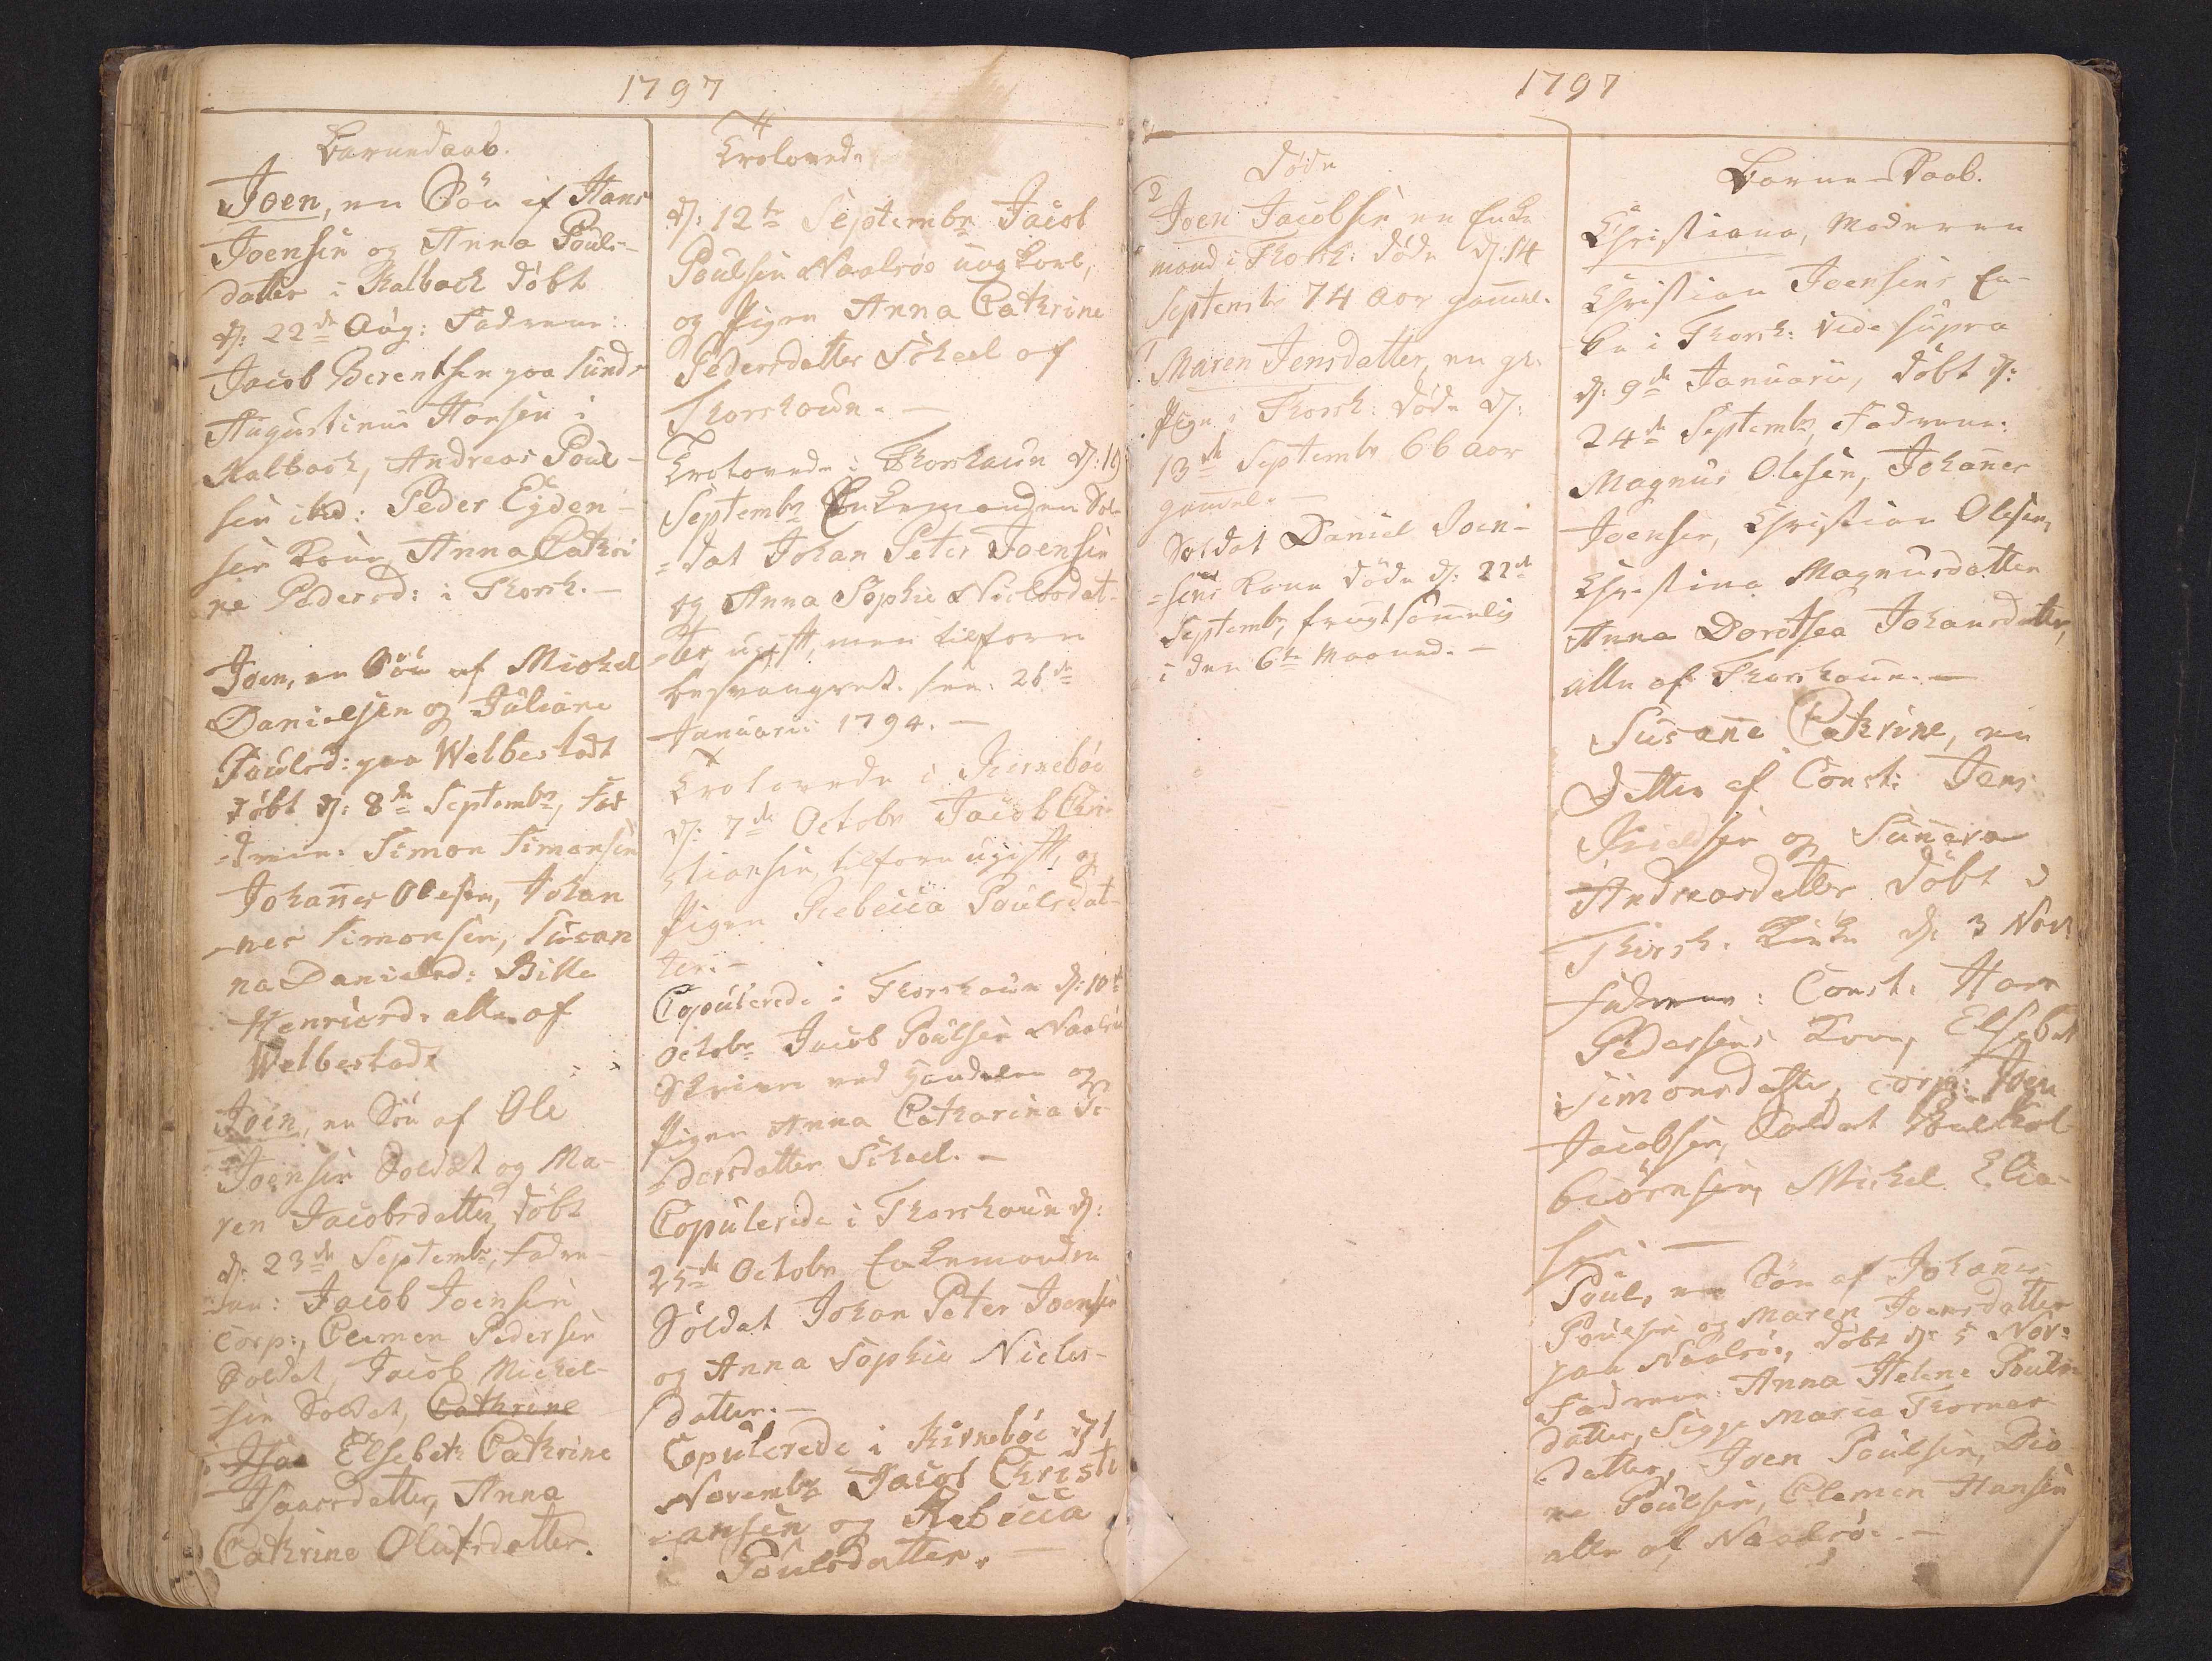 1797
Barnedaab.
Joen, en Sön af Hans
Joensen og Anna Pouls-
datter i Kalbach döbt
d: 22de Aug: Fadrene:
Jacob Berentsen paa Sund
Augustinus Hansen i
Kalback, Andreas Poul-
sen ibid: Peder Eyden-
sen Kone Anna Cathri
ne Pedersd: i Thorsh.-
Joen, en Sön af Michel
Danielsen og Juliane
Poulsd: paa Welbestadt
döbt d: 8de Septembr, Fad
drene: Simon Simonsen
Johannes Olesen, Johan
-nes Simonsen, Susan
na Danielsd: Bille
Henricsd: alle af
Welbestadt
Joen, en Sön af Ole
Joensen Soldat og Ma-
ren Jacobsdatter, döbt
d: 23de Septembr, Fadre-
ne: Jacob Joensen
Corp:, Clemen Pedersen
Soldat, Jacob Michel-
sen Soldat, Cathrine
Isaa Elsebet Cathrine
Isaacsdatter, Anna
Cathrine Olufsdatter.
Trolovede
d: 12te Septembr Jacob
Poulsen Naalsöe ung Karl,
og Pigen Anna Cathrine
Pedersdatter Scheel af
Thorshaun.-
Trolovede i Thorshaun d: 19
Septembr Enkemanden Sol-
=dat Johan Peter Joensen
og Anna Sophie Niclasdat-
ter, ugift, men tilforn
besvangret. see. 26de
Januarii 1794.-
Trolovede i Kirkeböe
d: 7de Octobr Jacob Chri-
stiansen, tilforn ugift, og
Pigen Rebecca Poulsdat-
ter.-
Copulerede i Thorshaun d: 10de
Octobr Jacob Poulsen Naalsöe
Skriver ved Handelen og
Pigen Anna Catharina Pe-
dersdatter Scheel.-
Copulerede i Thorshaun d:
25de Octobr Enkemanden
Soldat Johan Peter Joensen
og Anna Sophie Niclas-
datter.-
Copulerede i Kirkeböe d 1
Novembr Jacob Christi
ansen og Rebecca
Poulsdatter.
1797
Döde
2
Joen Jacobsen en Enke
mand i Thorsh: döde d: 14
Septembr 74 Aar gammel.
1
Maren Jensdatter, en gl:
Pige i Thorsh: döde d:
13de Septembr 66 Aar
gammel.
Soldat Daniel Joen-
=sens Kone döde d: 22de
Septembr, frugtsommelig
i den 6te Maaned.-
Barne-Daab.
Christiana, Moderen
Christian Joensens En-
ke i Thorsh: vide supra
d: 9de Januarii, döbt d:
24de Septembr, Fadrene:
Magnus Olesen, Johannes
Joensen, Christian Olesen,
Christina Magnusdatter
Anna Dorothea Johansdatter,
alle af Thorshaun.-
Susane Cathrine, en
Datter af Const: Jens
Kieldsen og Sunneva
Andreasdatter döbt i
Thorsh. Kirke d: 3 Nov:
Fadrene: Const. Hans
Pedersens Kone, Elsebet
Simonsdatter, Corp: Joen
Jacobsen, Soldat
biörnsen, Michel Elia-
sen.-
Poul, en Sön af Johannes
Poulsen og Maren Joensdatter
paa Naalsöe, döbt d: 5 Nov:
Fadrene: Anna Helene Pouls-
datter, Sigge Maria Thomas
datter, Joen Poulsen, Dio-
ne Poulsen, Clemen Hansen
alle af Naalsöe.-